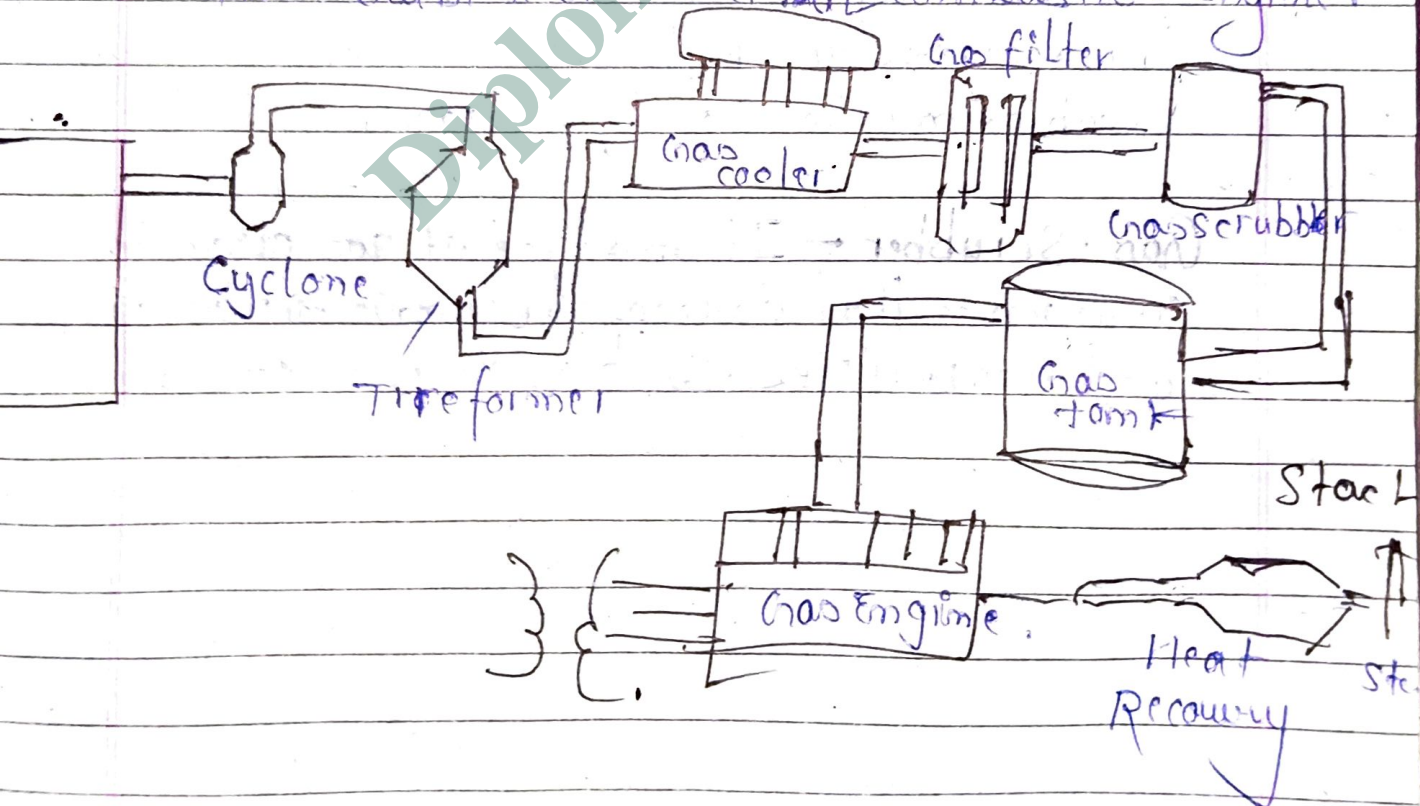 Diplom
Gas filter
Gas
cooler
Gas scrubber
Cyclone
Gas
tank
Stack
Gas Engine.
Heat
Recovery